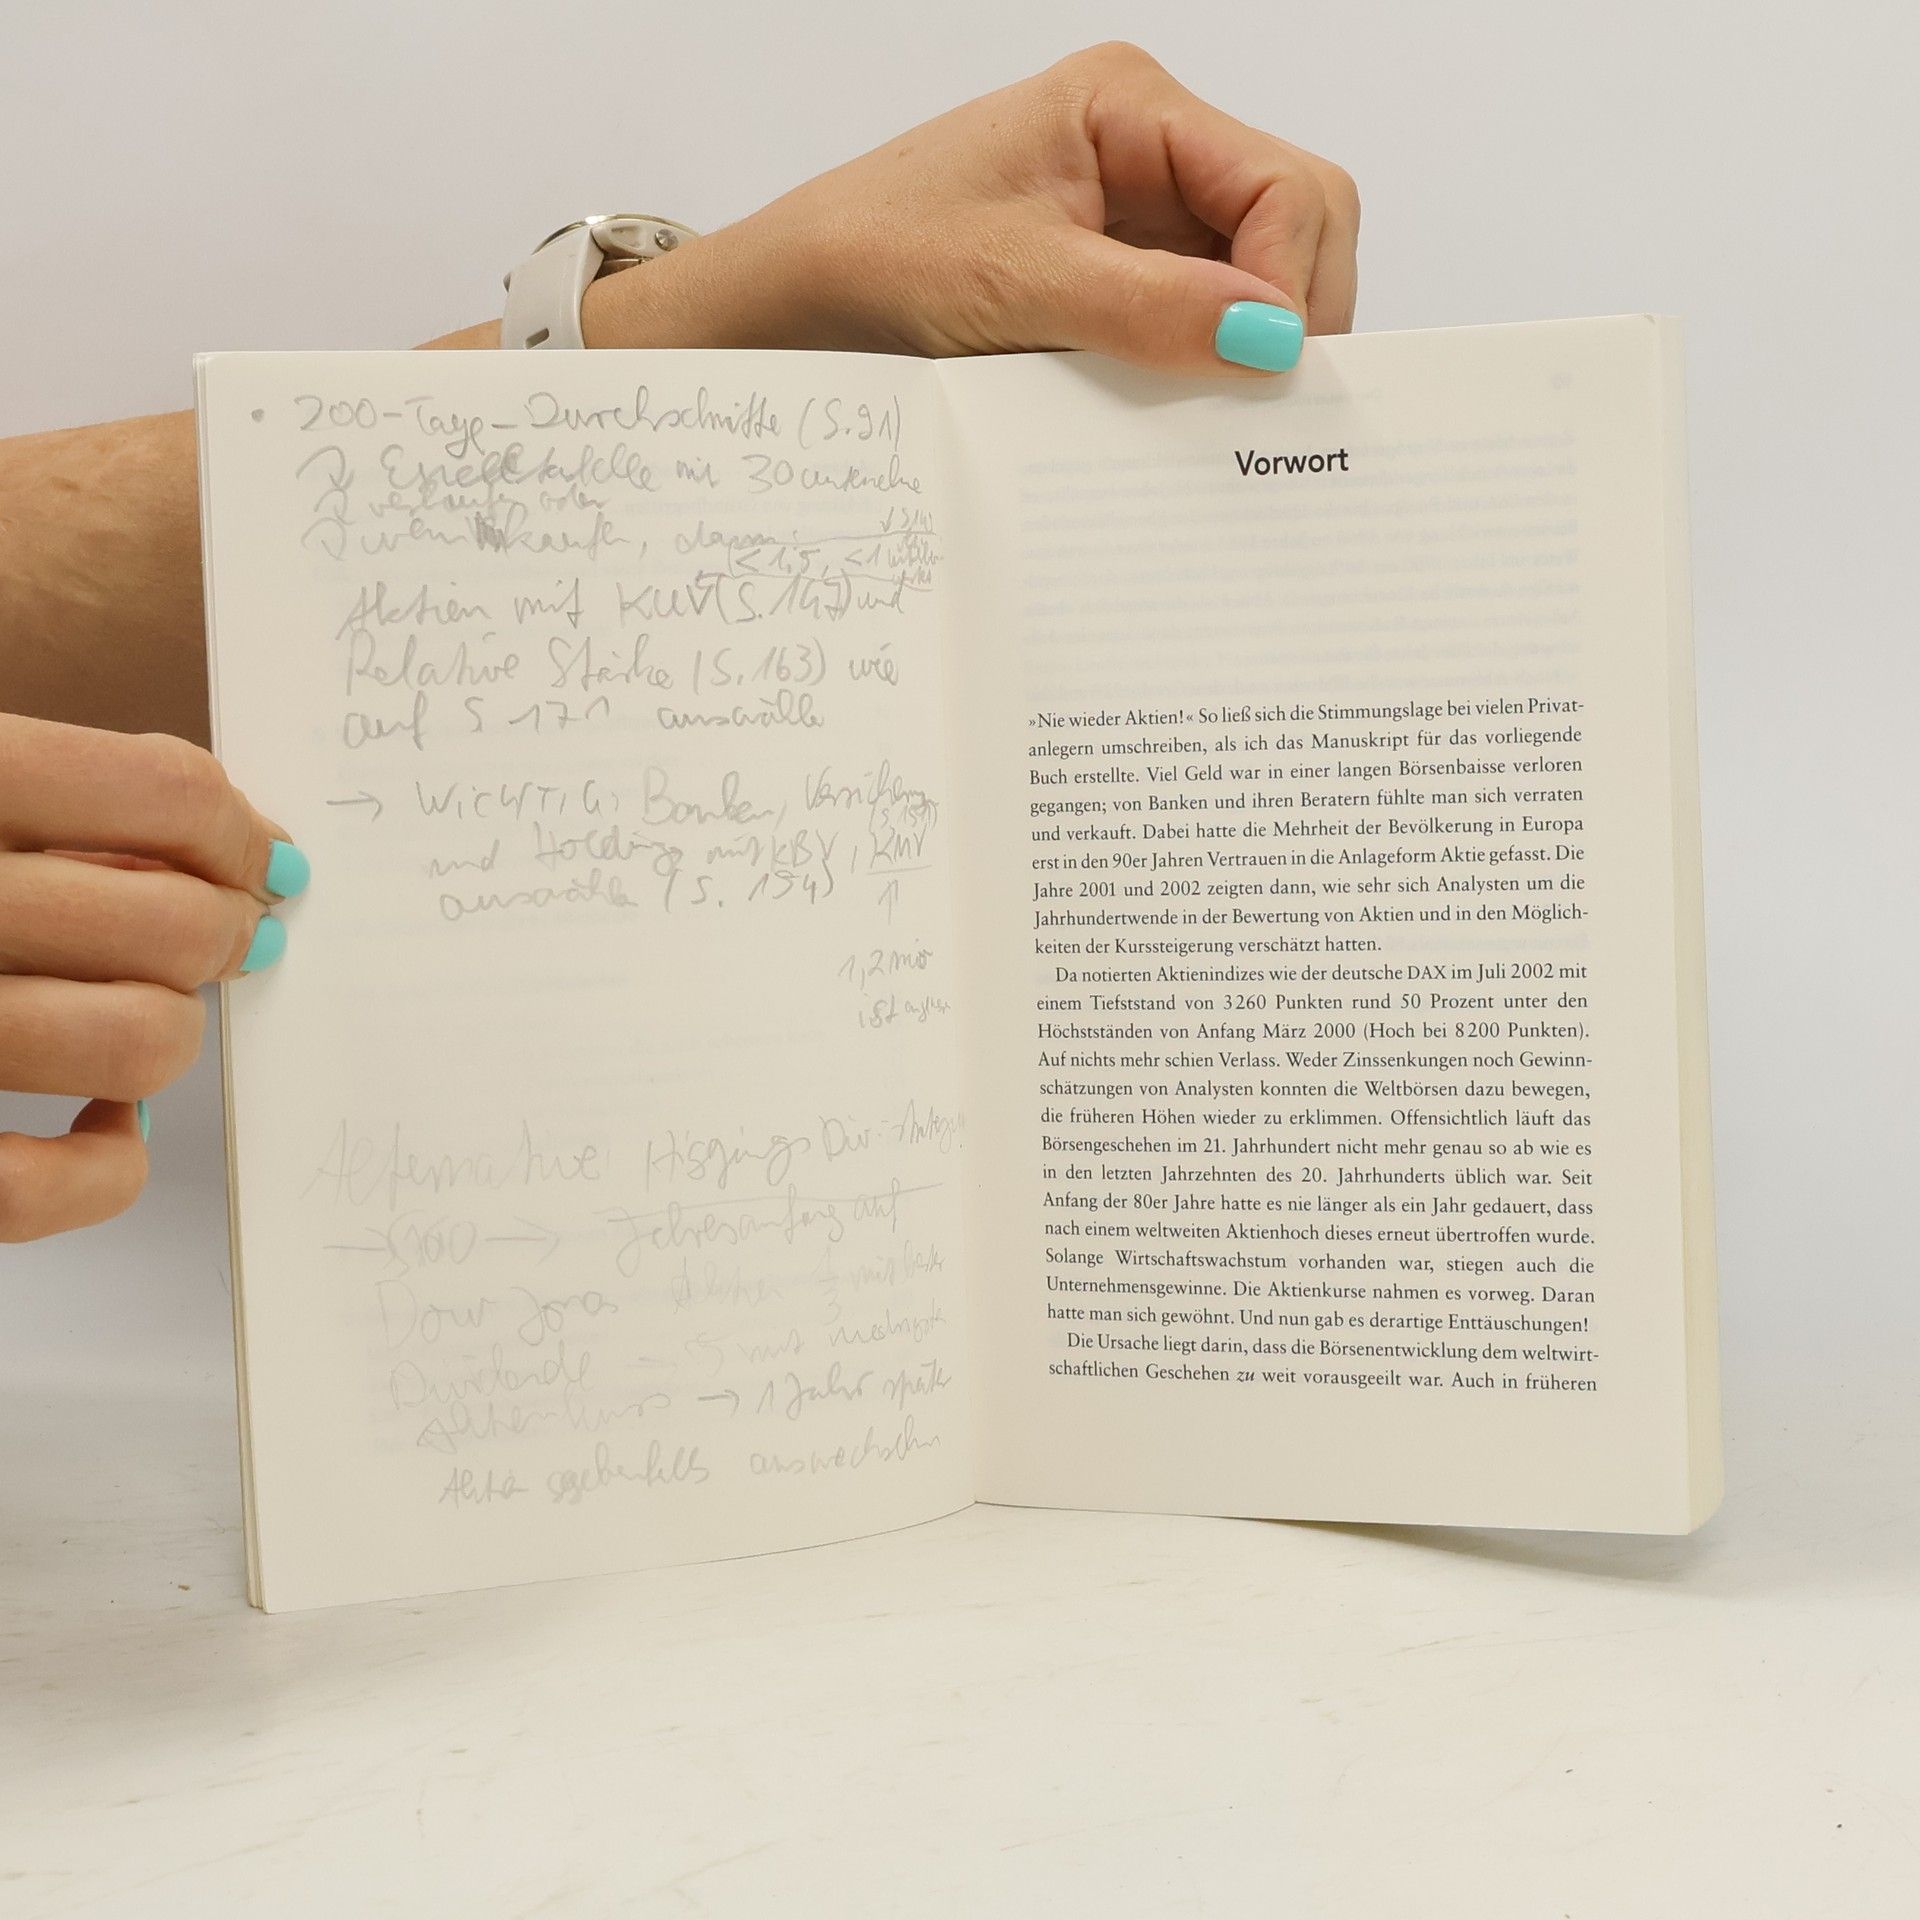 • 200-Tage-Durchschnitte (S.91)
30
verkaufen oder
kaufen, dann:
(< 1,5, < 1
Aktien mit KUV (S. 147) und
Relative Stärke (S. 163) wie
auf S 171 auswähle
→ WICHTIG: Banken, Versicherung
(S. 159)
und Holdings mit KBV, KMV
auswähle (S. 154)
↑
1,2 mio
ist
Alternative: Div.-Strategie
→ → Jahresanfang auf
Dow Jones Aktien mit
Dividende → 5 mit niedrigste
Aktienkurs → 1 Jahr später
Aktie gegebenfalls auswechseln
Vorwort
»Nie wieder Aktien!« So ließ sich die Stimmungslage bei vielen Privat-
anlegern umschreiben, als ich das Manuskript für das vorliegende
Buch erstellte. Viel Geld war in einer langen Börsenbaisse verloren
gegangen; von Banken und ihren Beratern fühlte man sich verraten
und verkauft. Dabei hatte die Mehrheit der Bevölkerung in Europa
erst in den 90er Jahren Vertrauen in die Anlageform Aktie gefasst. Die
Jahre 2001 und 2002 zeigten dann, wie sehr sich Analysten um die
Jahrhundertwende in der Bewertung von Aktien und in den Möglich-
keiten der Kurssteigerung verschätzt hatten.
Da notierten Aktienindizes wie der deutsche DAX im Juli 2002 mit
einem Tiefststand von 3260 Punkten rund 50 Prozent unter den
Höchstständen von Anfang März 2000 (Hoch bei 8200 Punkten).
Auf nichts mehr schien Verlass. Weder Zinssenkungen noch Gewinn-
schätzungen von Analysten konnten die Weltbörsen dazu bewegen,
die früheren Höhen wieder zu erklimmen. Offensichtlich läuft das
Börsengeschehen im 21. Jahrhundert nicht mehr genau so ab wie es
in den letzten Jahrzehnten des 20. Jahrhunderts üblich war. Seit
Anfang der 80er Jahre hatte es nie länger als ein Jahr gedauert, dass
nach einem weltweiten Aktienhoch dieses erneut übertroffen wurde.
Solange Wirtschaftswachstum vorhanden war, stiegen auch die
Unternehmensgewinne. Die Aktienkurse nahmen es vorweg. Daran
hatte man sich gewöhnt. Und nun gab es derartige Enttäuschungen!
Die Ursache liegt darin, dass die Börsenentwicklung dem weltwirt-
schaftlichen Geschehen zu weit vorausgeeilt war. Auch in früheren